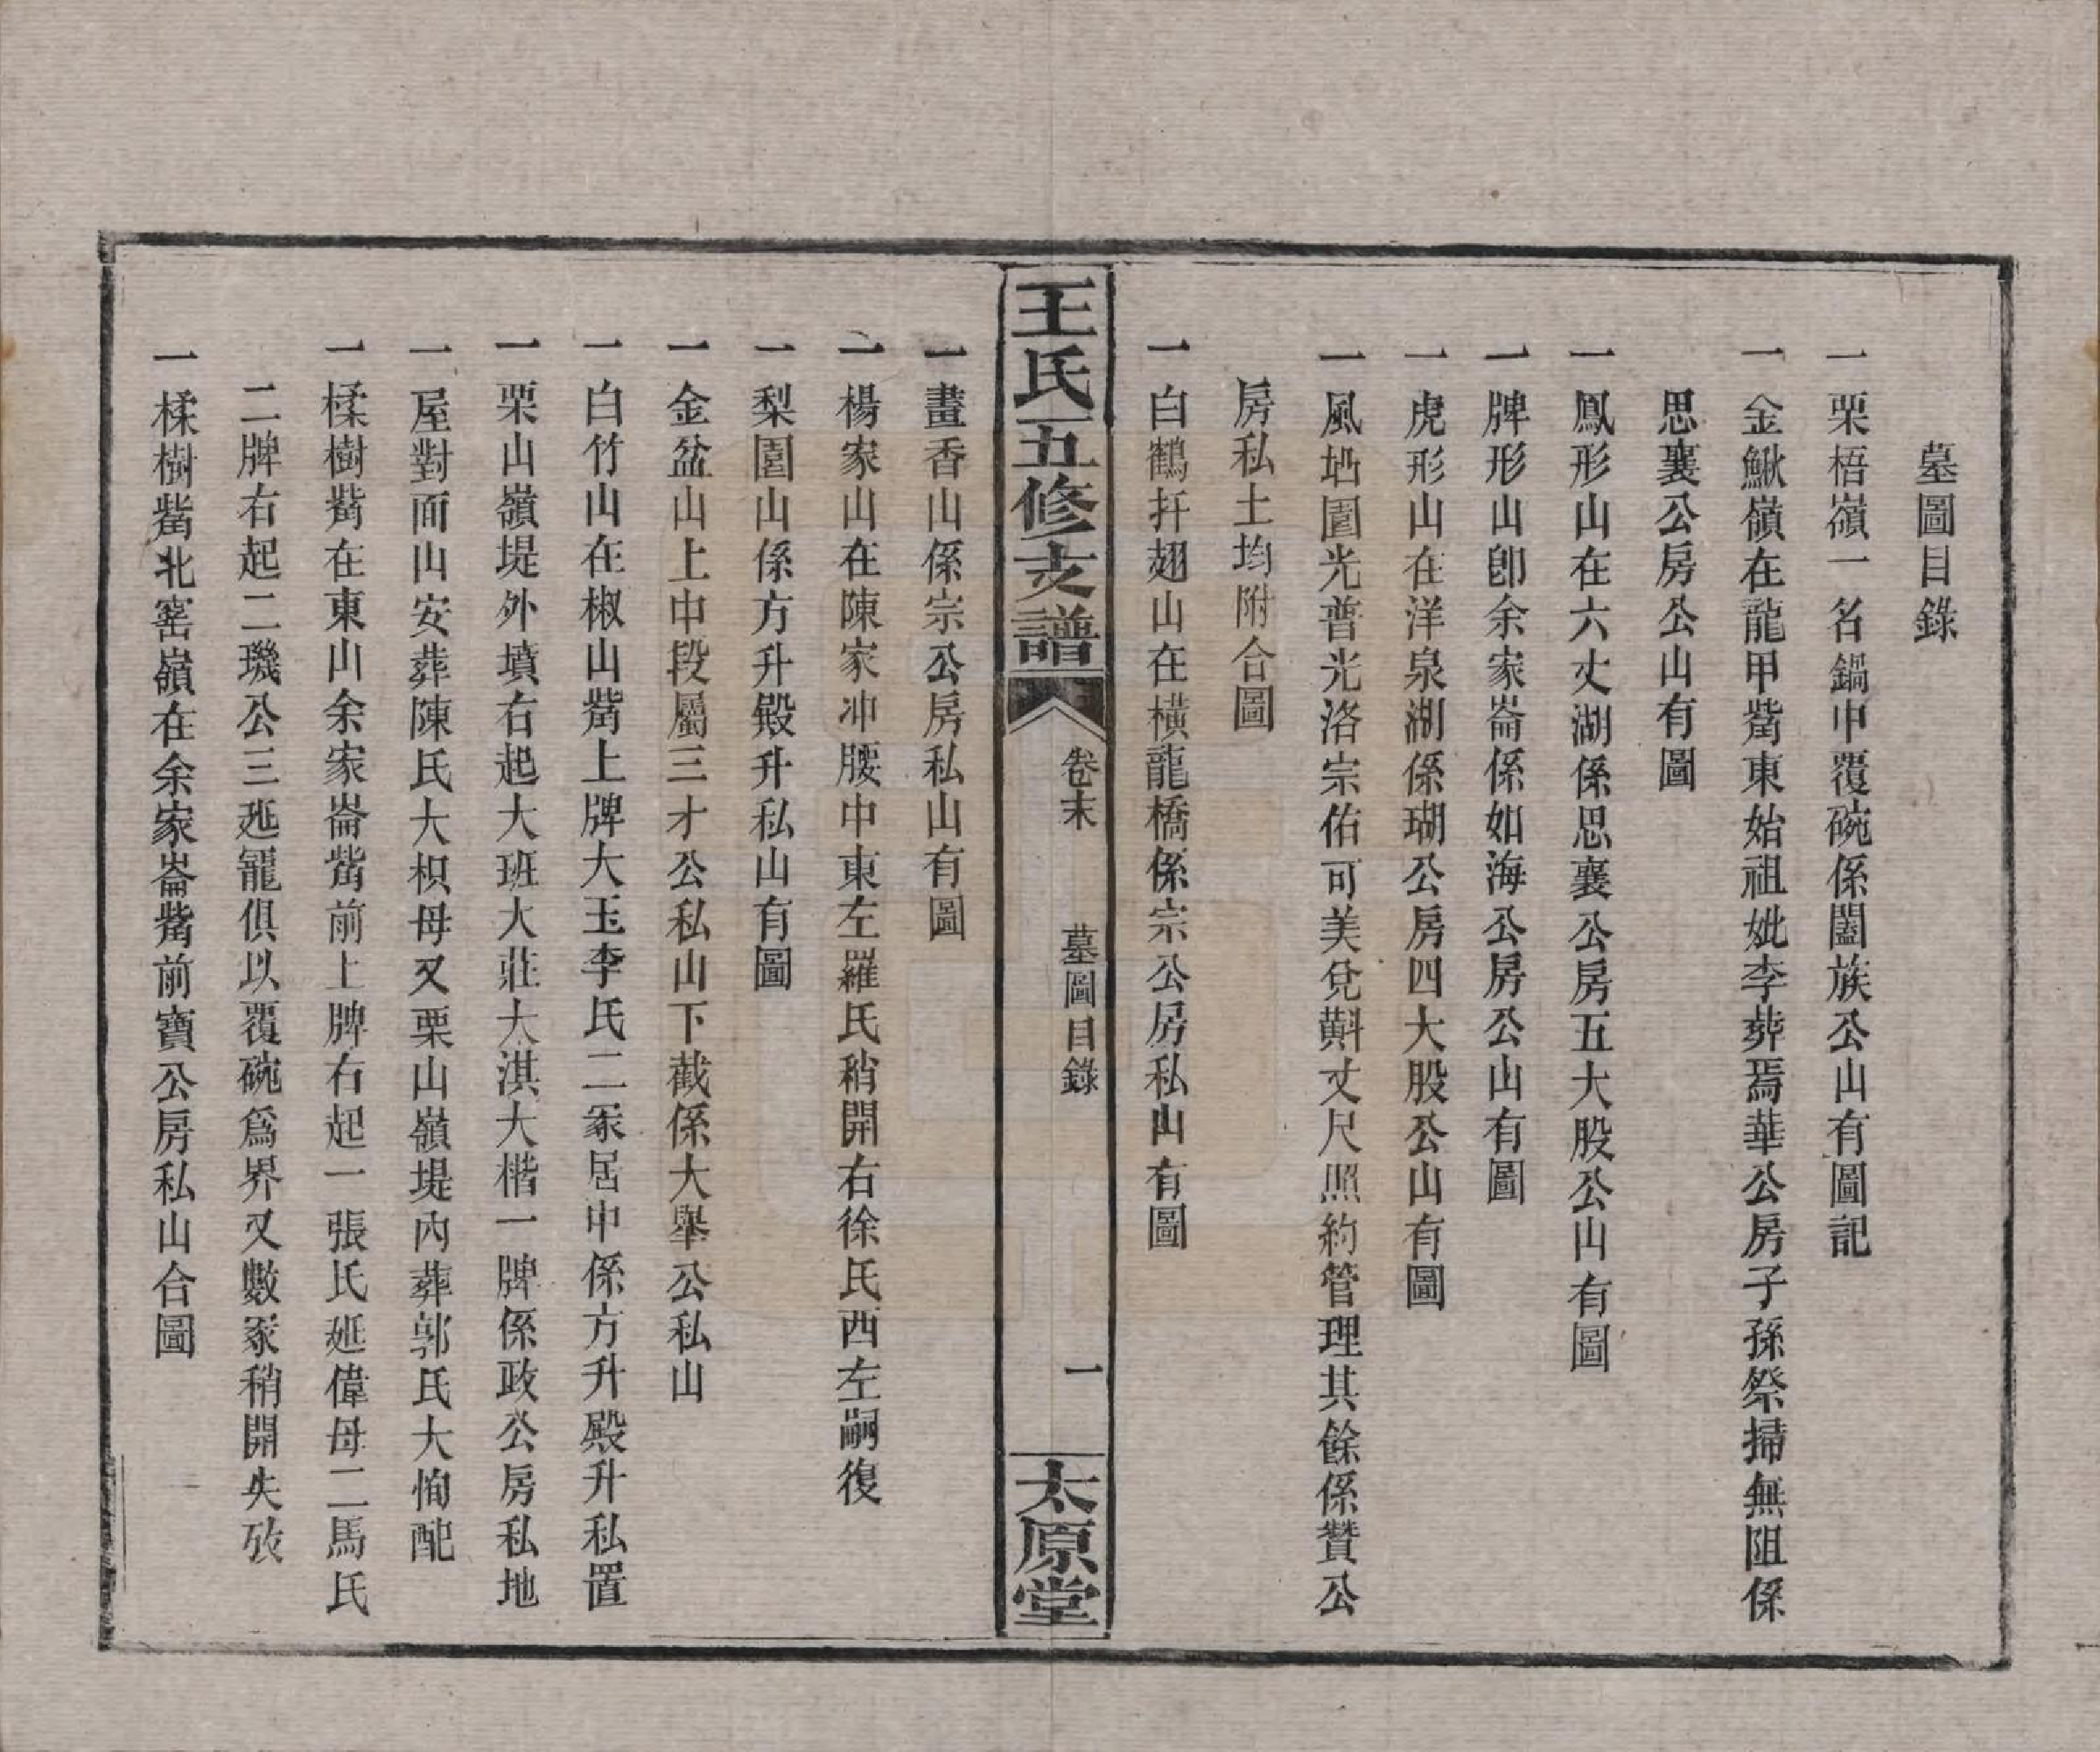 墓圖目錄
一栗梧嶺一名鍋中覆碗係闔族公山有圖記
一金鰍嶺在龍甲嶲東始祖妣李葬焉華公房子孫祭掃無阻係
思襄公房公山有圖
一鳳形山在六丈湖係思襄公房五大股公山有圖
一牌形山卽余家崙係如海公房公山有圖
一虎形山在洋泉湖係瑚公房四大股公山有圖
一風坮園光普光洛宗佑可美兌斢丈尺照約管理其餘係贊公
房私土均附合圖
一白鶴扞翅山在橫龍橋係宗公房私山有圖
王氏五修支譜
卷末
墓圖目錄
一
太原堂
一畫香山係宗公房私山有圖
一楊家山在陳家冲腰中東左羅氏稍開右徐氏西左嗣復
一梨園山係方升殿升私山有圖
一金盆山上中段屬三才公私山下截係大舉公私山
一白竹山在椒山嶲上牌大玉李氏二冢居中係方升殿升私置
一栗山嶺堤外墳右起大班大莊大淇大楷一牌係政公房私地
一屋對面山安葬陳氏大枳母又栗山嶺堤內葬郭氏大恂配
一楺樹嶲在東山余家崙嶲前上牌右起一張氏延偉母二馬氏
二牌右起二璣公三延寵俱以覆碗爲界又數冢稍開失攷
一楺樹嶲北窰嶺在余家崙嶲前寶公房私山合圖